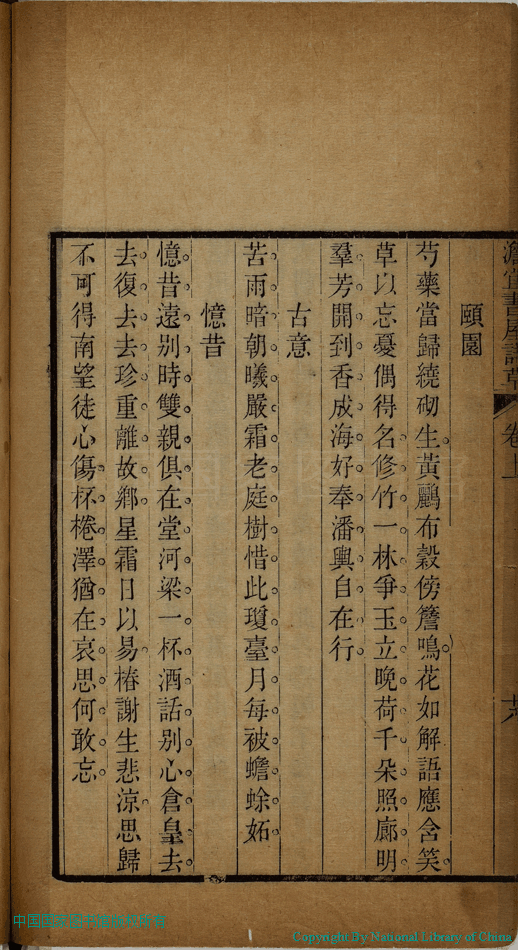 澹宜書屋詩草
卷上
頤園
芍藥當歸繞砌生黃鸝布穀傍簷鳴花如解語應含笑
草以忘憂偶得名修竹一林爭玉立晚荷千朵照廊明
羣芳開到香成海好奉潘輿自在行
古意
苦雨暗朝曦嚴霜老庭樹惜此瓊臺月每被蟾蜍妬
憶昔
憶昔遠別時雙親俱在堂河梁一杯酒話別心倉皇去
去復去去珍重離故鄉星霜日以易椿謝生悲涼思歸
不可得南望徒心傷杯棬澤猶在哀思何敢忘
Copyright By National Library of China